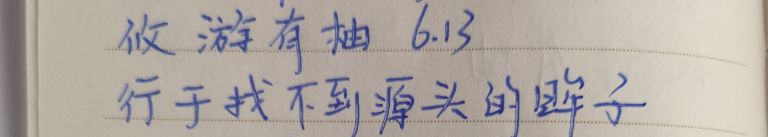 攸游有柚 6.13
行于找不到源头的眸子